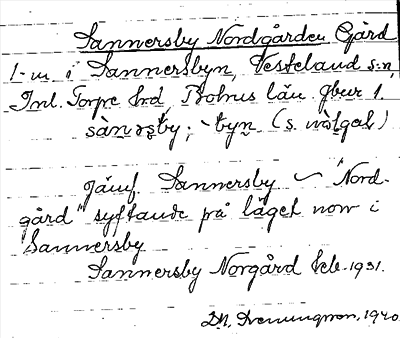 Sannersby Nordgården Gård
1 m. i Sannersbyn, Vesteland s:n,
Inl. Torpe hrd, Bohus län, Gbeur 1.
sànərsby; -byn (s.
Jämf. Sannersby ~ "Nord-
gård" syftande på läget norr i
Sannersby
Sannersby Norgård Seb. 1931.
1940